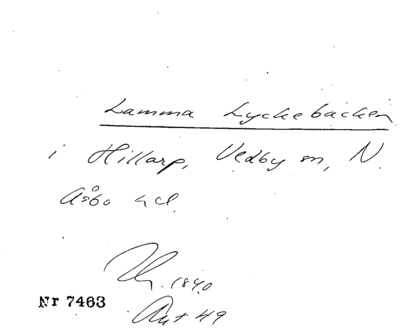 Lamma Lyckebacken
i Hillarp, Vedby sn, N.
Åsbo hd.
1840
Nr 7463
Ant 49